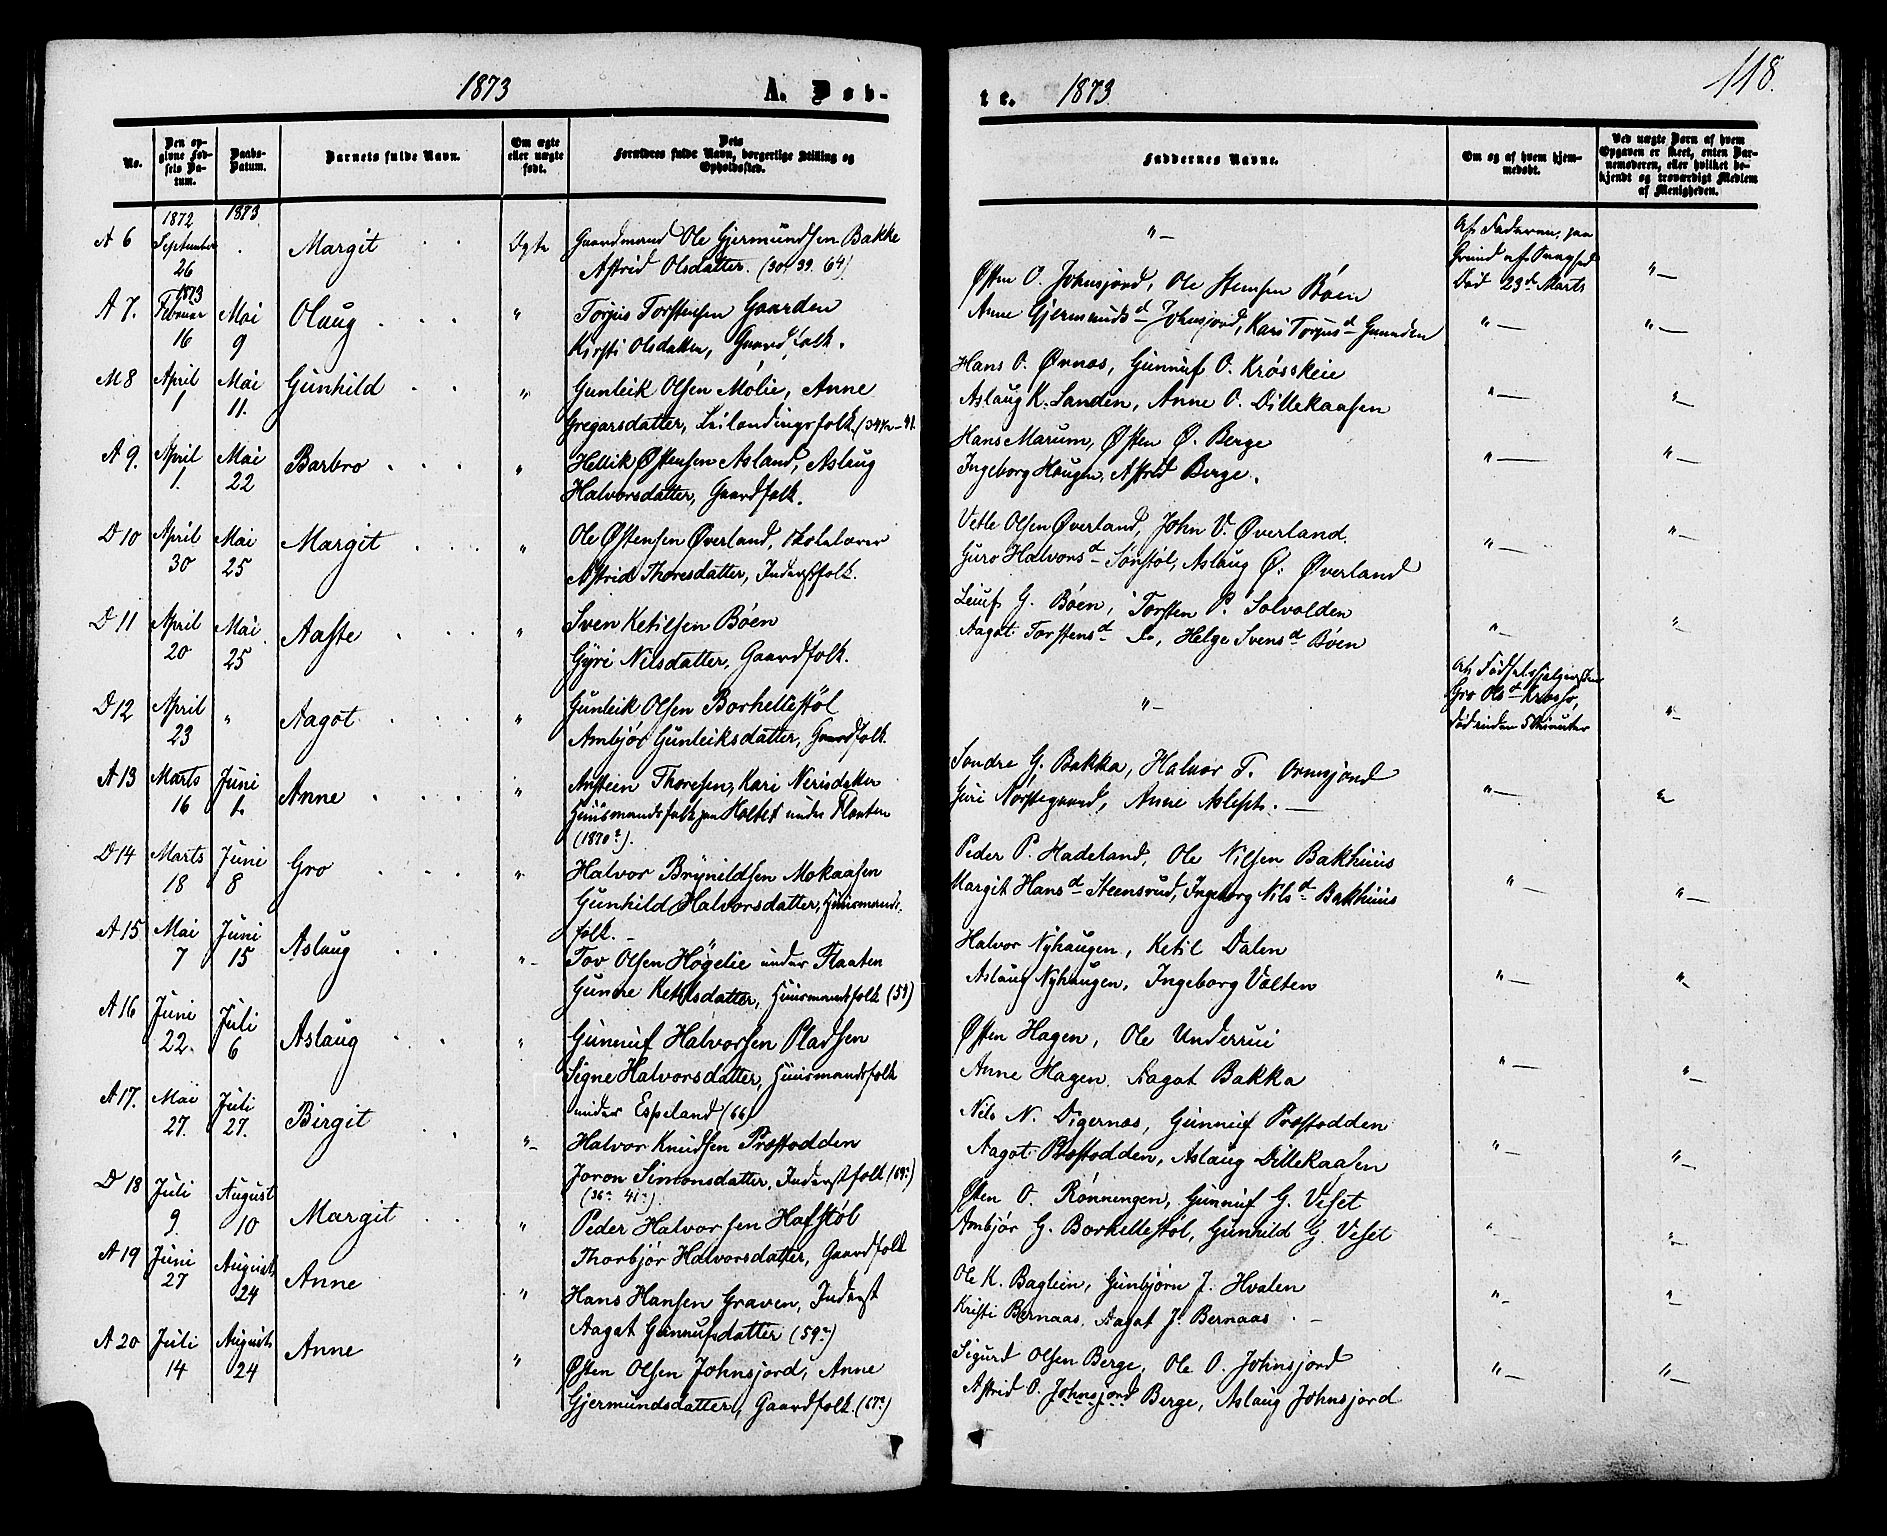 1873 A. Døb-
No. Den opgivne Fødsels Datum. Daabs-Datum. Barnets fulde Navn. Om ægte eller uægte født. Dets Forældres fulde Navn, borgerlige Stilling og Opholdssted.
1872 1873
A 6 September 26 Margit Ægte Gaardmand Ole Gjermundsen Bakke
Astrid Olsdatter. (30. 39. 64)
1873
A 7. Februar 16 Mai 9 Olaug " Torjus Torstensen Gaarden
Kirsti Olsdatter, Gaardfolk.
M 8 April 1 Mai 11. Gunhild " Gunleik Olsen Molie, Anne
Gregarsdatter, Leilændingsfolk.
A 9. April 1. Mai 22 Barbro " Hellik Østensen Asland, Aslaug
Halvorsdatter, Gaardfolk.
D 10 April 30 Mai 25 Margit " Ole Østensen Øverland, Skolelærer
Astrid Thoresdatter, Inderstfolk.
D 11 April 20 Mai 25 Aaste " Sven Ketilsen Bøen
Gyri Nilsdatter, Gaardfolk.
D 12 April 23 " Aagot " Gunleik Olsen Borkellestøl
Ambjør Gunleiksdatter, Gaardfolk.
A 13 Marts 16 Juni 1. Anne " Anstein Thoresen, Kari Nerisdatter
Huusmandsfolk paa Holtet under Flaaten
(1870)
D 14 Marts 18 Juni 8 Gro " Halvor Brynildsen Mokaasen
Gunhild Halvorsdatter, Huusmands-
folk.
A 15 Mai 7 Juni 15 Aslaug " Tov Olsen Høgelie under Flaaten
Gunne Ketilsdatter, Huusmandsfolk (59)
A 16 Juni 22. Juli 6 Aslaug " Gunnuf Halvorsen Pladsen
Signe Halvorsdatter, Huusmandsfolk
under Espeland (66)
A 17. Mai 27. Juli 27. Birgit " Halvor Knudsen Præstodden
Joron Simonsdatter, Inderstfolk (69)
(36. 41)
D 18 Juli 9. August 10 Margit " Peder Halvorsen Hafstøl
Thorbjør Halvorsdatter, Gaardfolk
A 19 Juni 27 August 24 Anne " Hans Hansen Graven, Inderst
Aagat Gunnufsdatter (59)
A 20 Juli 14 August 24 Anne " Østen Olsen Johnsjord, Anne
Gjermundsdatter, Gaardfolk. (67)
te. 1873. 118.
Faddernes Navne. Om og af hvem hjemmedøbt. Ved uægte Børn af hvem Opgaven er skeet, enten Barnemoderen, eller hvilket bekjendt og troværdigt Medlem af Menigheden.
" Af Faderen, paa
Grund af Svaghed
Død 23d Marts
Østen O. Johnsjord, Ole Stensen Bøen
Anne Gjermundsd Johnsjord, Kari Torjusd Gaarden
Hans O. Øvnæs, Gunnuf O. Krøsskeie
Aslaug K. Landen, Anne O. Dillekaasen
Hans Marum, Østen Ø. Berge
Ingeborg Haugen, Astrid Berge.
Vetle Olsen Øverland, John V. Øverland.
Guro Halvorsd Sønstøl, Aslaug Ø. Øverland
Leiuf G. Bøen, Torsten P. Solvolden
Aagot Torstensd Do, Helge Svensd Bøen
" Af Fødselshjælpersken
Gro Olsd Krosso,
død inden 5 Minuter
Sondre G. Bakka, Halvor T. Ormsjord
Guri Norstegaard, Anne Aslepts.
Peder P. Hadeland, Ole Nilsen Bakhuus
Margit Hansd Steensrud, Ingeborg Nilsd Bakhuus
Halvor Nyhaugen, Ketil Dalen
Aslaug Nyhaugen, Ingeborg Valten
Østen Hagen, Ole Underrui
Anne Hagen, Aagat Bakka
Nils N. Digernæs, Gunnuf Præstodden
Aagot Præstodden, Aslaug Dillekaasen
Østen O. Rønningen, Gunnuf G. Viset
Ambjør G. Borkellestøl, Gunhild G. Viset
Ole K. Baglein, Gunbjørn J. Hvalen
Kristi Bernaas, Aagat J. Bernaas
Sigurd Olsen Berge, Ole O. Johnsjord
Astrid O. Johnsjord Berge, Aslaug Johnsjord